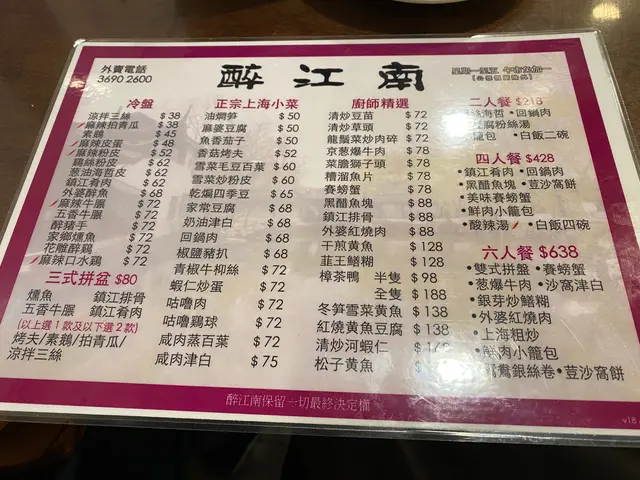 外賣電話
3690 2600
醉江南
星期一至五 午市免加一
冷盤
涼拌三絲 $ 38
麻辣拍青瓜 $ 38
素鵝 $ 45
麻辣皮蛋 $ 48
麻辣粉皮 $ 52
雞絲粉皮 $ 62
葱油海哲皮 $ 62
鎮江肴肉 $ 62
外婆醉魚 $ 68
麻辣牛腒 $ 72
五香牛腒 $ 72
醉豬手 $ 72
家鄉燻魚 $ 72
花雕醉鷄 $ 72
麻辣口水鷄 $ 72
三式拼盆 $80
燻魚 鎮江排骨
五香牛腒 鎮江肴肉
(以上選1款及以下選2款)
烤夫/素鵝/拍青瓜/
涼拌三絲
正宗上海小菜
油燜笋 $ 50
麻婆豆腐 $ 50
魚香茄子 $ 50
香菇烤夫 $ 52
雪菜毛豆百葉 $ 60
雪菜炒粉皮 $ 60
乾煸四季豆 $ 65
家常豆腐 $ 68
奶油津白 $ 68
回鍋肉 $ 68
椒鹽豬扒 $ 68
青椒牛柳絲 $ 72
蝦仁炒蛋 $ 72
咕嚕肉 $ 72
咕嚕鷄球 $ 72
咸肉蒸百葉 $ 72
咸肉津白 $ 75
廚師精選
清炒豆苗 $ 72
清炒草頭 $ 72
龍鬚菜炒肉碎 $ 72
京葱爆牛肉 $ 72
菜膽獅子頭 $ 78
糟溜魚片 $ 78
賽螃蟹 $ 78
黑醋魚塊 $ 88
鎮江排骨 $ 88
外婆紅燒肉 $ 88
干煎黄魚 $ 128
韮王鱔糊 $ 128
樟茶鴨 半隻 $ 98
全隻 $ 188
冬笋雪菜黄魚 $ 138
紅燒黄魚豆腐 $ 138
清炒河蝦仁
松子黄魚
二人餐 $218
•回鍋肉
粉絲湯
•白飯二碗
四人餐 $428
•鎮江肴肉 •回鍋肉
•黑醋魚塊 •荳沙窩餅
•美味賽螃蟹
•鮮肉小籠包
•酸辣湯 •白飯四碗
六人餐 $638
•雙式拼盤 •賽螃蟹
•葱爆牛肉 •沙窩津白
•銀芽炒鱔糊
•外婆紅燒肉
•上海粗炒
•鮮肉小籠包
鴛鴦銀絲卷 •荳沙窩餅
醉江南保留一切最終決定權